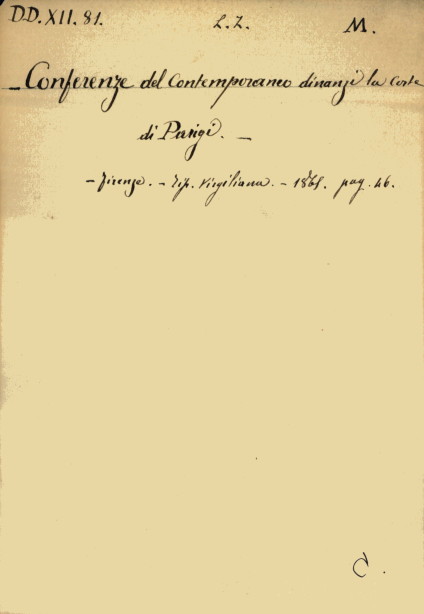 D.D. XII. 81. L. Z. M.
— Conferenze del Contemporaneo dinanzi la Corte
di Parigi. —
– Firenze. – Tip. Virgiliana. – 1861. pag. 46.
C.